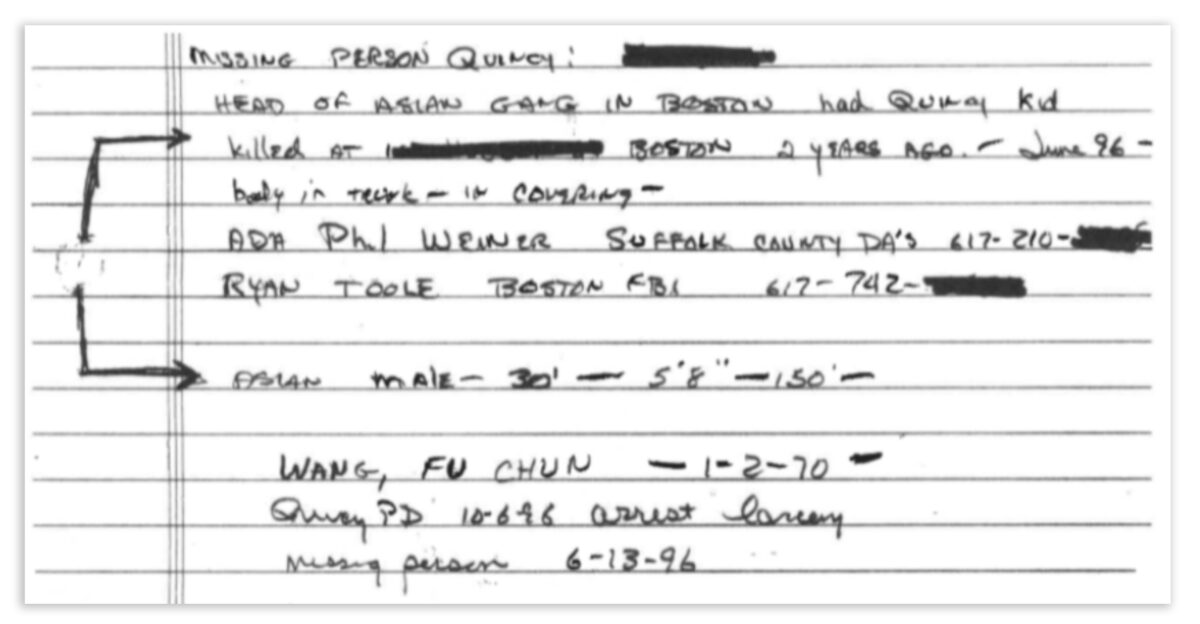 MISSING PERSON QUINCY:
HEAD OF ASIAN GANG IN BOSTON had Quincy Kid
killed AT BOSTON 2 YEARS AGO. - June 96 -
body in trunk - IN COVERING -
ADA Phil WEINER SUFFOLK COUNTY DA'S 617-210-
RYAN TOOLE BOSTON FBI 617-742-
ASIAN MALE - 30' - 5'8" - 150' -
WANG, FU CHUN - 1-2-70 -
Quincy PD 10-696 arrest Larceny
Missing person 6-13-96